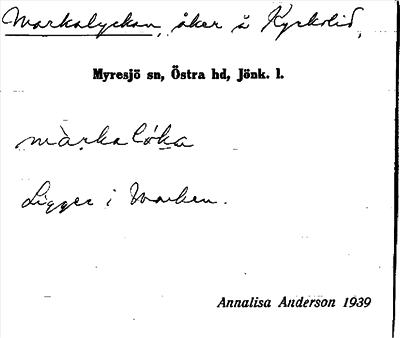 Markalyckan, åker å Kyrkolid,
Myresjö sn, Östra hd, Jönk. l.
màrkalók̠a
Ligger i Marken.
Annalisa Anderson 1939